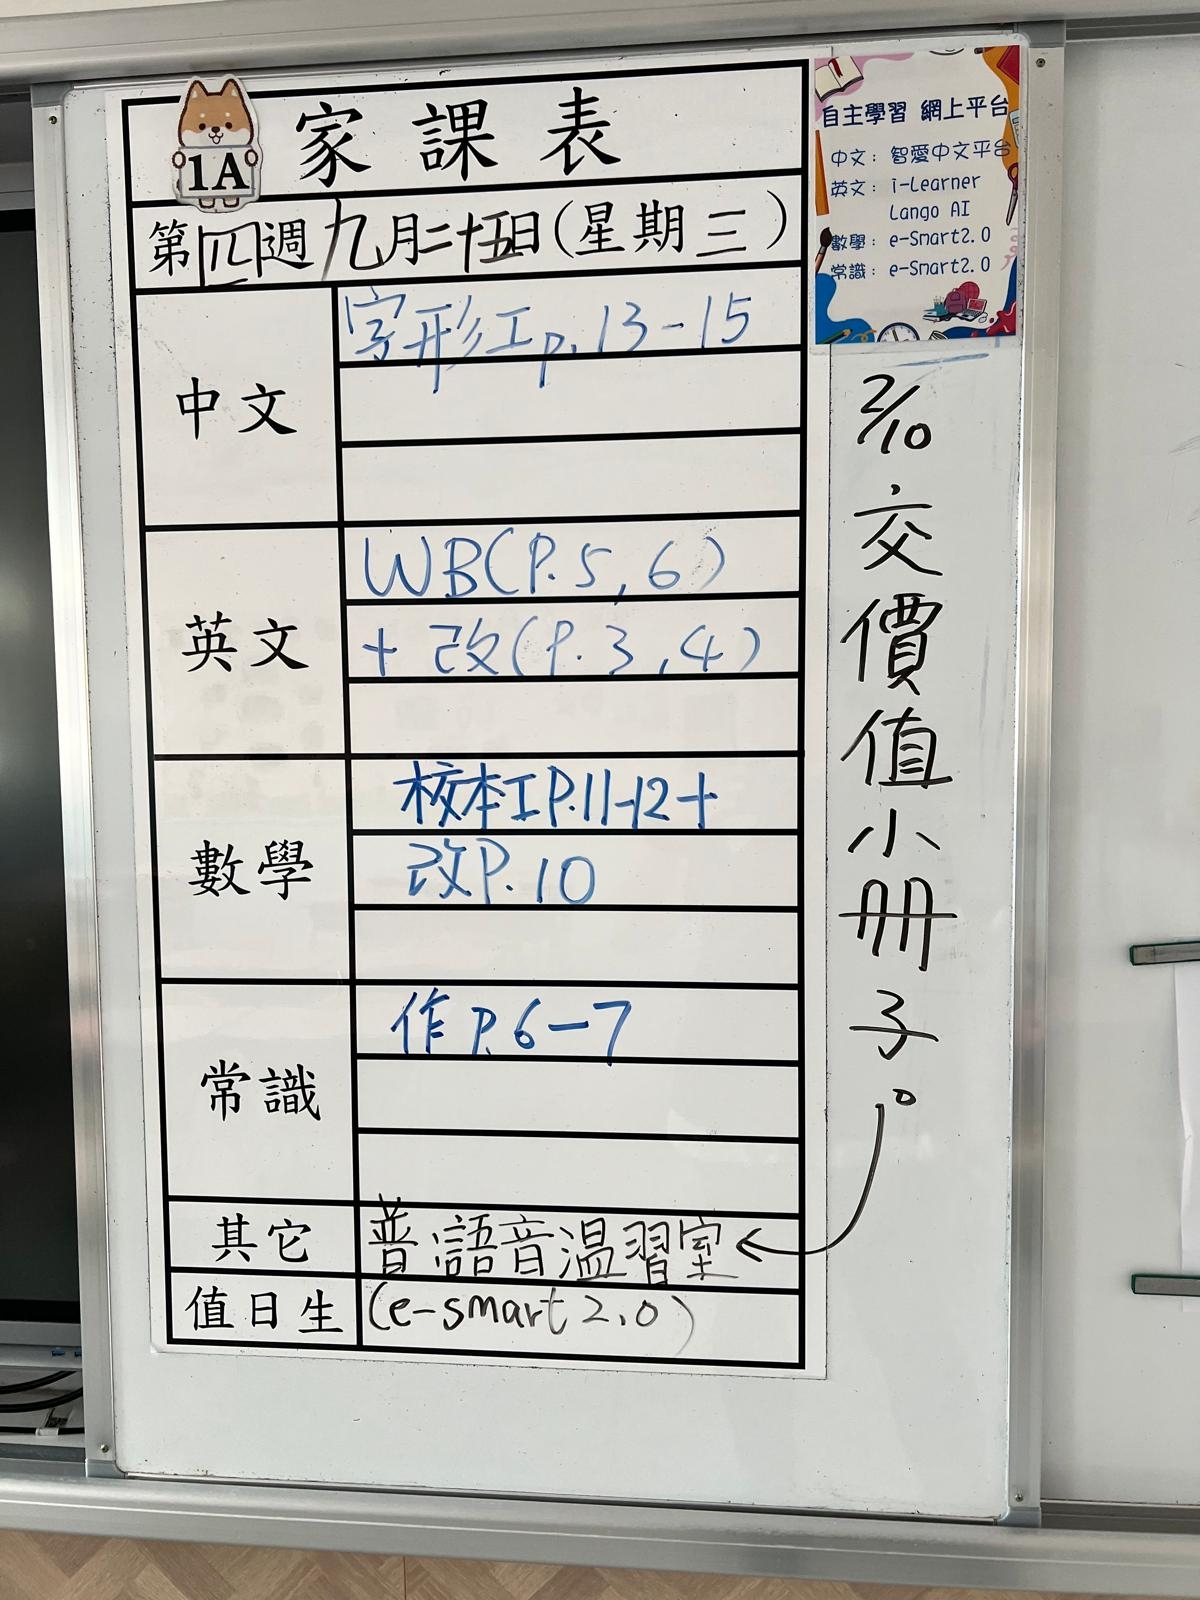 1A
家課表
第四週 九月二十五日(星期三)
中文
字形工p.13-15
英文
WB(P.5,6)
+改(P.3,4)
數學
校本工P.11-12+
改P.10
常識
作P.6-7
其它
普語音溫習室
值日生
(e-smart 2.0)
自主學習 網上平台
中文: 智愛中文平台
英文: i-Learner
Lango AI
數學: e-Smart2.0
常識: e-Smart2.0
2/10交價值小冊子。